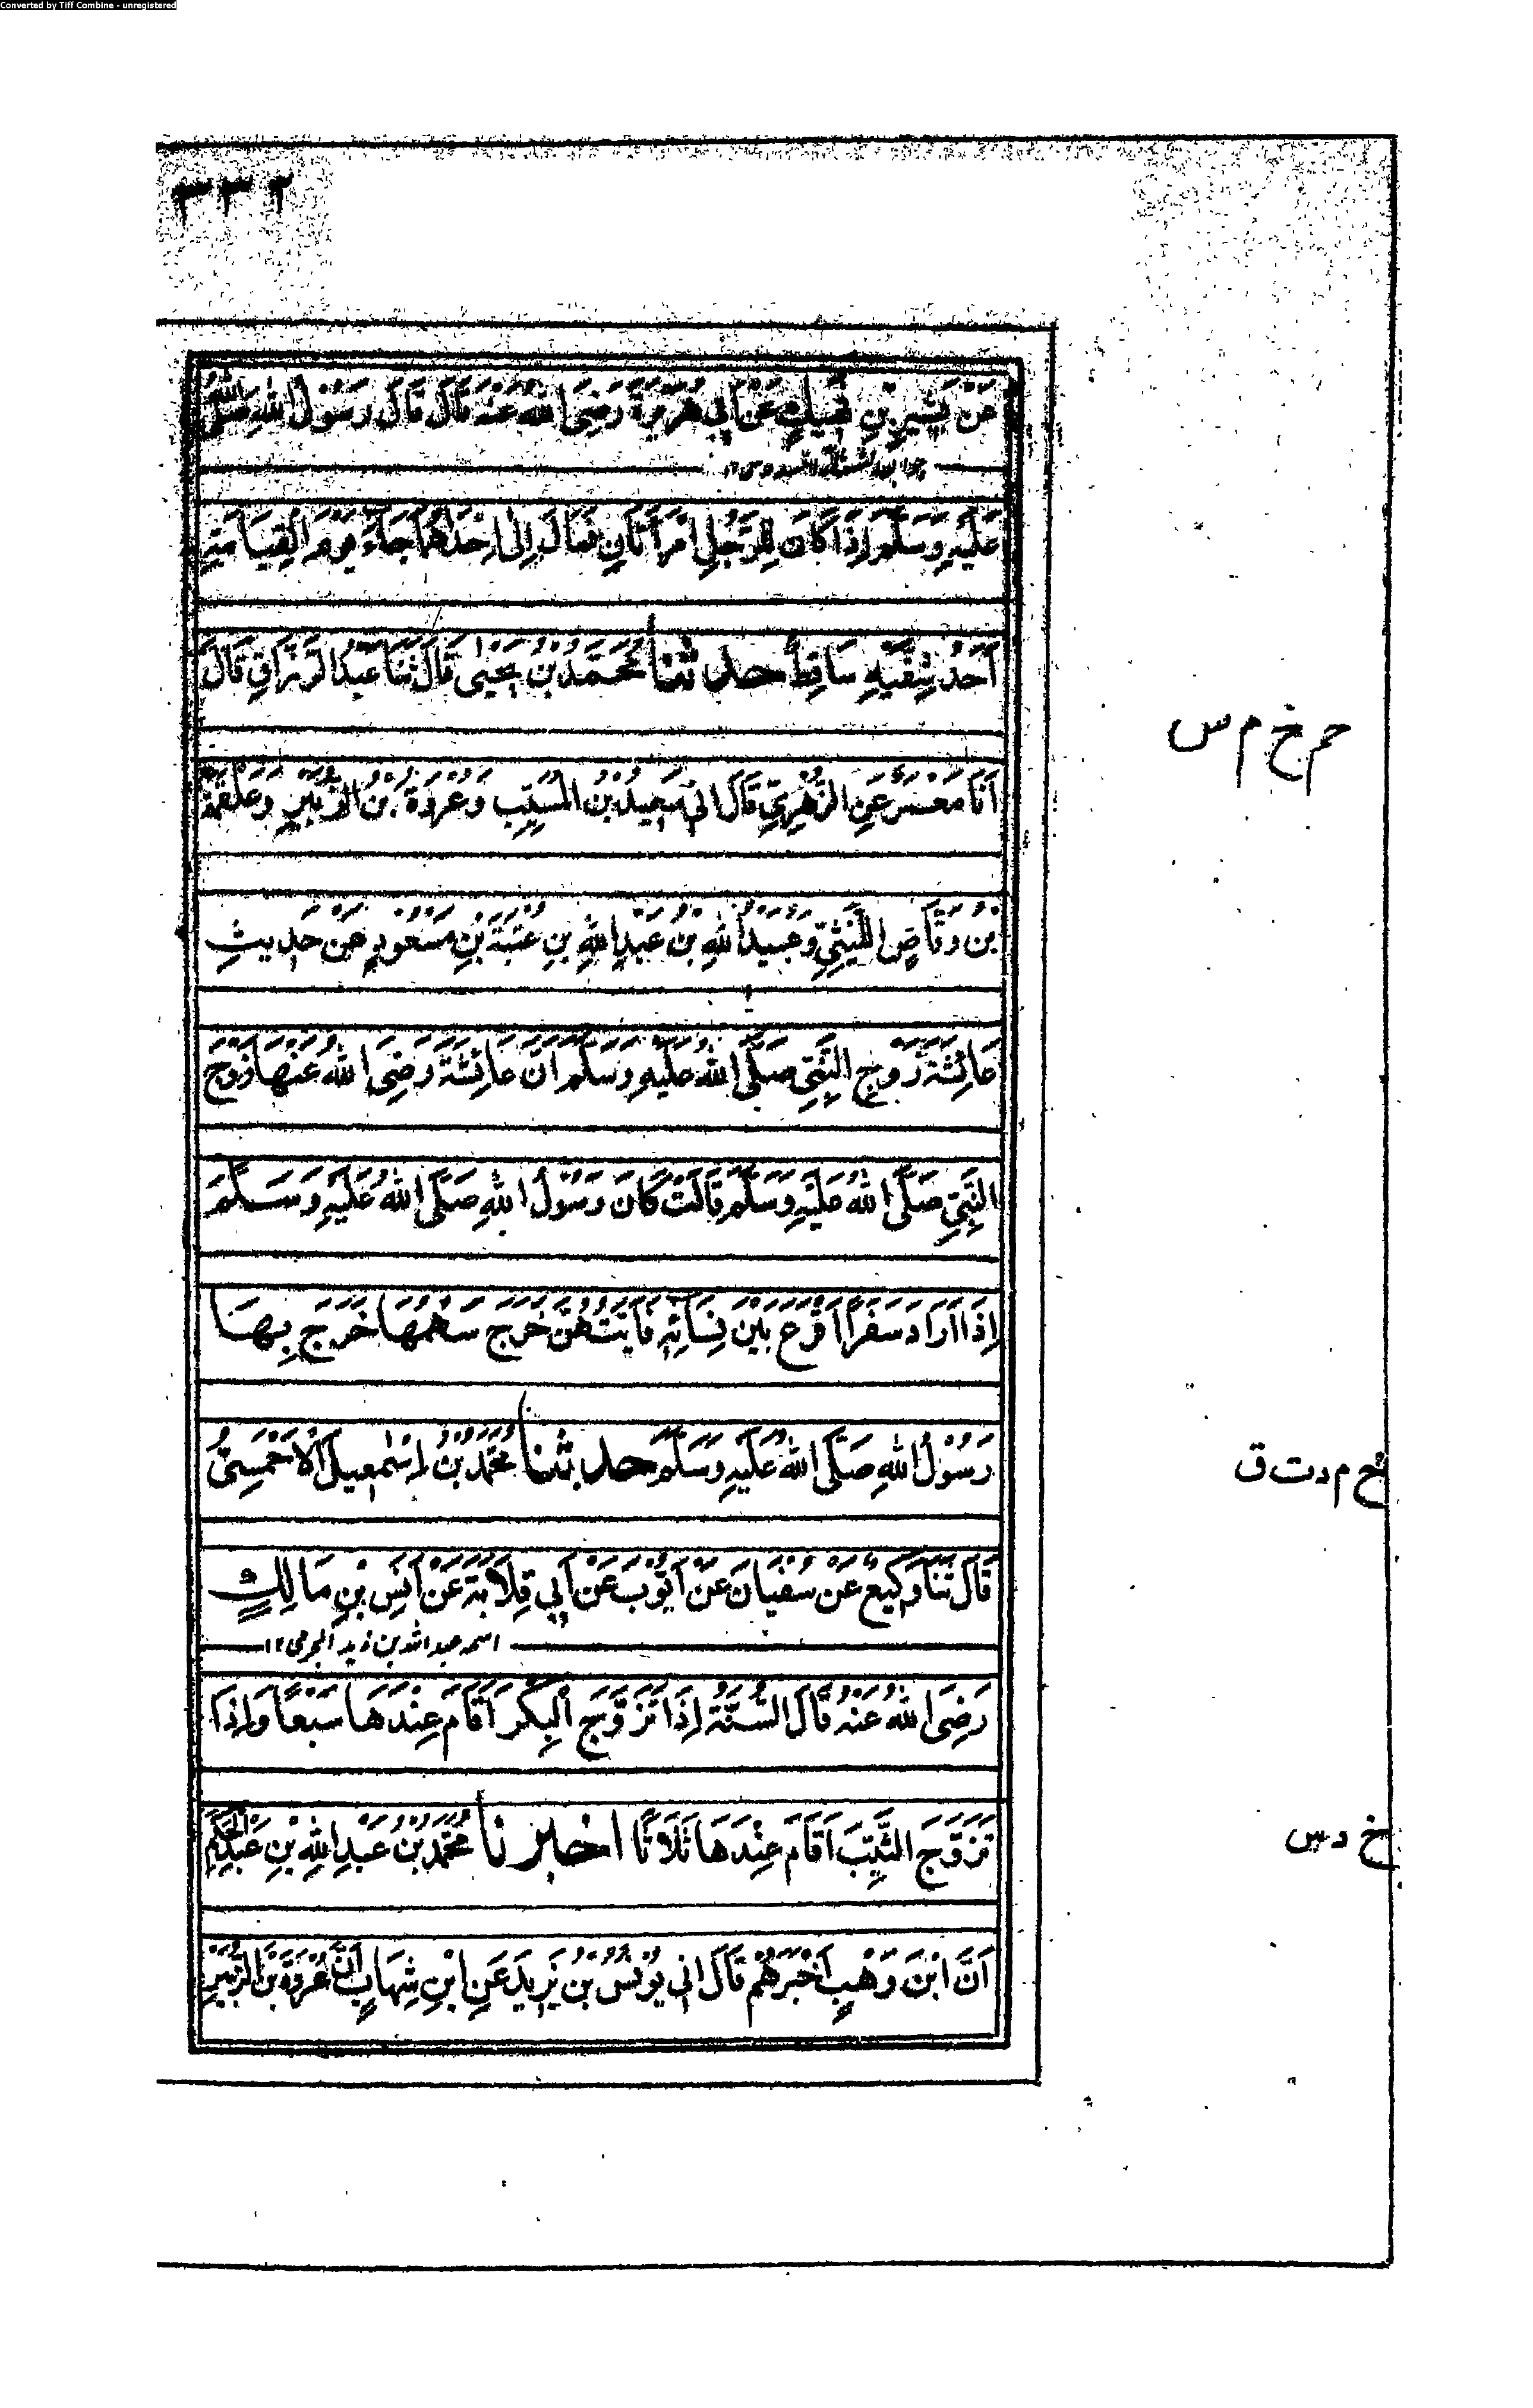 Converted by Tiff Combine - unregistered
٣٣٢
عَنْ بَشِيرِ بْنِ نَهِيكٍ عَنْ أَبِي هُرَيْرَةَ رَضِيَ اللهُ عَنْهُ قَالَ قَالَ رَسُوْلُ اللهِ صَلَّى اللهُ
عَلَيْهِ وَسَلَّمَ إِذَا كَانَ لِلرَّجُلِ امْرَأَتَانِ فَمَالَ إِلٰى إِحْدٰهُمَا جَاءَ يَوْمَ الْقِيَامَةِ
أَحَدُ شِقَّيْهِ سَاقِطٌ حدثنا مُحَمَّدُ بْنُ يَحْيٰى قَالَ ثَنَا عَبْدُ الرَّزَّاقِ قَالَ
حم خ م س
أَنَا مَعْمَرٌ عَنِ الزُّهْرِيِّ قَالَ انى سَعِيدُ بْنُ الْمُسَيِّبِ وَعُرْوَةُ بْنُ الزُّبَيْرِ وَعَلْقَمَةُ
بْنُ وَقَّاصٍ اللَّيْثِيِّ وَعُبَيْدُ اللهِ بْنُ عَبْدِ اللهِ بْنِ عُتْبَةَ بْنِ مَسْعُوْدٍ عَنْ حَدِيثِ
عَائِشَةَ زَوْجِ النَّبِيِّ صَلَّى اللهُ عَلَيْهِ وَسَلَّمَ أَنَّ عَائِشَةَ رَضِيَ اللهُ عَنْهَا زَوْجَ
النَّبِيِّ صَلَّى اللهُ عَلَيْهِ وَسَلَّمَ قَالَتْ كَانَ رَسُوْلُ اللهِ صَلَّى اللهُ عَلَيْهِ وَسَلَّمَ
إِذَا أَرَادَ سَفَرًا أَقْرَعَ بَيْنَ نِسَائِهِ فَأَيَّتُهُنَّ خَرَجَ سَهْمُهَا خَرَجَ بِهَا
رَسُوْلُ اللهِ صَلَّى اللهُ عَلَيْهِ وَسَلَّمَ حدثنا مُحَمَّدُ بْنُ إِسْمٰعِيلَ الْأَحْمَسِيُّ
خ م د ت ق
قَالَ ثَنَا وَكِيعٌ عَنْ سُفْيَانَ عَنْ أَيُّوْبَ عَنْ أَبِي قِلَابَةَ عَنْ أَنَسِ بْنِ مَالِكٍ
اسمه عبد الله بن زيد الجرمى ١٢
رَضِيَ اللهُ عَنْهُ قَالَ السُّنَّةُ إِذَا تَزَوَّجَ الْبِكْرَ أَقَامَ عِنْدَهَا سَبْعًا وَإِذَا
تَزَوَّجَ الثَّيِّبَ أَقَامَ عِنْدَهَا ثَلَاثًا اخبرنا مُحَمَّدُ بْنُ عَبْدِ اللهِ بْنِ عَبْدِ الْحَكَمِ
خ د س
أَنَّ ابْنَ وَهْبٍ أَخْبَرَهُمْ قَالَ انى يُوْنُسُ بْنُ يَزِيدَ عَنِ ابْنِ شِهَابٍ أَنَّ عُرْوَةَ بْنَ الزُّبَيْرِ